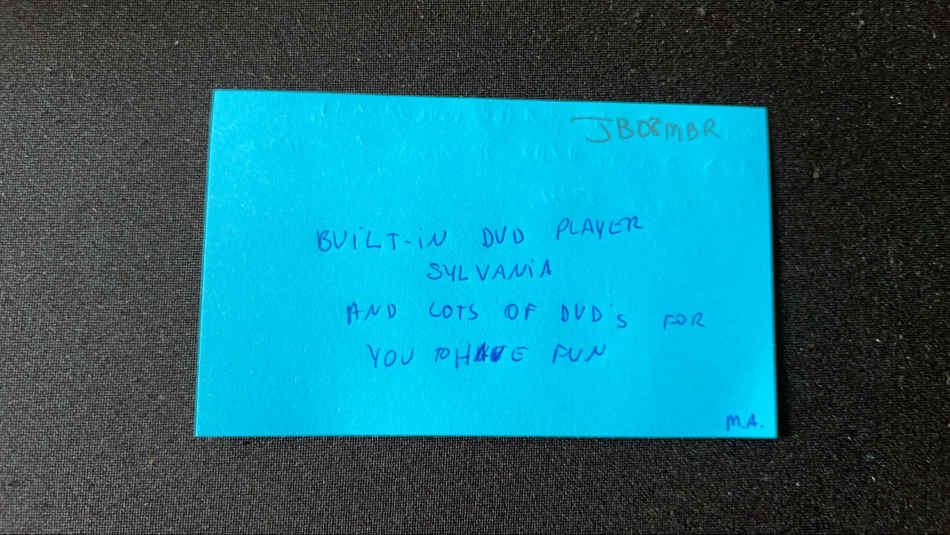 JB08MBR
BUiLT-iN DVD PLAYER
SYLVANiA
AND LOTS OF DVD's FOR
YOU TO HAVE FUN
M.A.